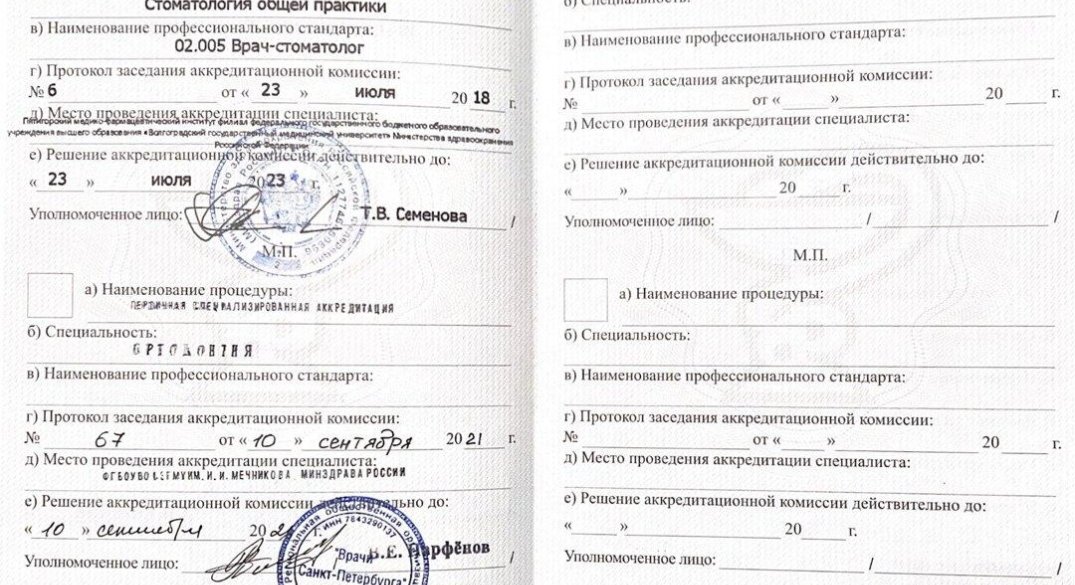 Стоматология общей практики
в) Наименование профессионального стандарта:
02.005 Врач-стоматолог
г) Протокол заседания аккредитационной комиссии:
№ 6 от « 23 » июля 20 18 г.
д) Место проведения аккредитации специалиста:
Пятигорский медико-фармацевтический институт филиал федерального государственного бюджетного образовательного
учреждения высшего образования «Волгоградский государственный медицинский университет» Министерства здравоохранения
Российской Федерации
е) Решение аккредитационной комиссии действительно до:
« 23 » июля 2023 г.
Уполномоченное лицо: Т.В. Семенова /
М.П.
а) Наименование процедуры:
ПЕРВИЧНАЯ СПЕЦИАЛИЗИРОВАННАЯ АККРЕДИТАЦИЯ
б) Специальность:
ОРТОДОНТИЯ
в) Наименование профессионального стандарта:
г) Протокол заседания аккредитационной комиссии:
№ 67 от « 10 » сентября 20 21 г.
д) Место проведения аккредитации специалиста:
ИМ. И. И. МЕЧНИКОВА МИНЗДРАВА РОССИИ
е) Решение аккредитационной комиссии действительно до:
« 10 » сентября 20 г.
ИНН 7843290137
"Врачи
Санкт-Петербурга"
Уполномоченное лицо: В.Е. Парфёнов /
б) Специальность:
в) Наименование профессионального стандарта:
г) Протокол заседания аккредитационной комиссии:
№ от « » 20 г.
д) Место проведения аккредитации специалиста:
е) Решение аккредитационной комиссии действительно до:
« » 20 г.
Уполномоченное лицо: / /
М.П.
а) Наименование процедуры:
б) Специальность:
в) Наименование профессионального стандарта:
г) Протокол заседания аккредитационной комиссии:
№ от « » 20 г.
д) Место проведения аккредитации специалиста:
е) Решение аккредитационной комиссии действительно до:
« » 20 г.
Уполномоченное лицо: / /